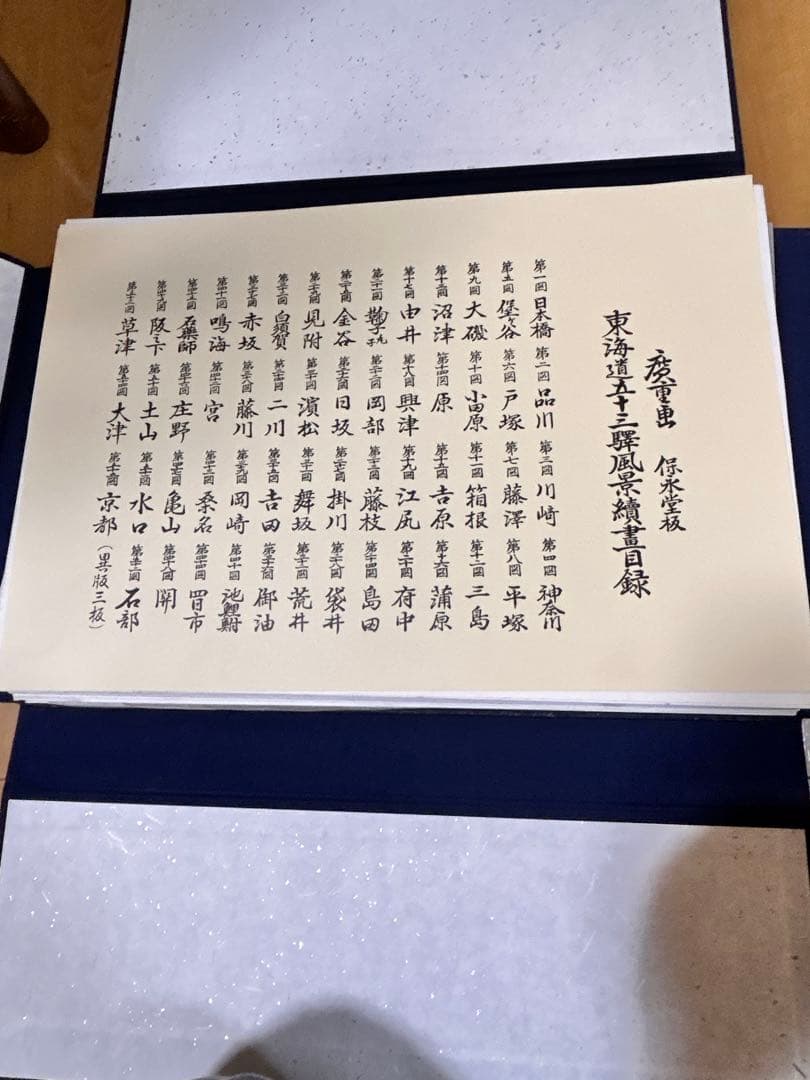 廣重画 保永堂板
東海道五十三驛風景續畫目録
第一回 日本橋 第二回 品川 第三回 川崎 第四回 神奈川
第五回 堡ヶ谷 第六回 戸塚 第七回 藤澤 第八回 平塚
第九回 大磯 第十回 小田原 第十一回 箱根 第十二回 三島
第十三回 沼津 第十四回 原 第十五回 吉原 第十六回 蒲原
第十七回 由井 第十八回 興津 第十九回 江尻 第二十回 府中
第二十一回 鞠子 第二十二回 岡部 第二十三回 藤枝 第二十四回 島田
第二十五回 金谷 第二十六回 日坂 第二十七回 掛川 第二十八回 袋井
第二十九回 見附 第三十回 濱松 第三十一回 舞坂 第三十二回 荒井
第三十三回 白須賀 第三十四回 二川 第三十五回 吉田 第三十六回 御油
第三十七回 赤坂 第三十八回 藤川 第三十九回 岡崎 第四十回 池鯉鮒
第四十一回 鳴海 第四十二回 宮 第四十三回 桑名 第四十四回 四日市
第四十五回 石薬師 第四十六回 庄野 第四十七回 亀山 第四十八回 関
第四十九回 阪之下 第五十回 土山 第五十一回 水口 第五十二回 石部
第五十三回 草津 第五十四回 大津 第五十五回 京都 (異版三板)